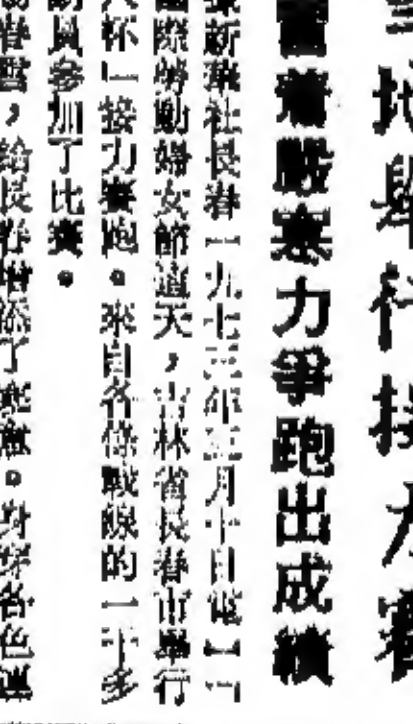 地舉行接力賽
嚴寒力爭跑出成績
新華社長春一九七三年三月十日電】
國際勞動婦女節這天，吉林省長春市舉行
杯」接力賽跑。來自各條戰線的一千多
動員參加了比賽。
春雪，給長春增添了寒意。身穿各色運